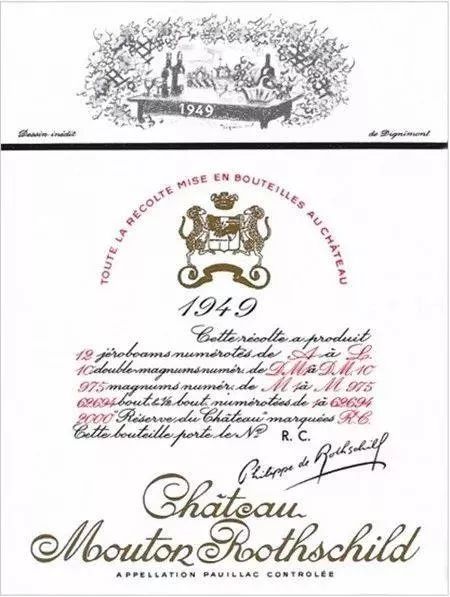 1949
Dessin inédit
de Dignimont
TOUTE LA RÉCOLTE MISE EN BOUTEILLES AU CHÂTEAU
1949
Cette récolte a produit
12 jéroboams numérotés de A à L
10 double-magnums numér. de DM1 à DM10
975 magnums numér. de M1 à M975
62694 bout. & ½ bout. numérotées de 1 à 62694
2000 "Réserve du Château" marquées R.C.
Cette bouteille porte le No R. C.
Philippe de Rothschild
Château
Mouton Rothschild
APPELLATION PAUILLAC CONTROLÉE